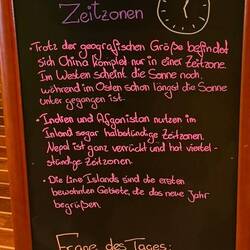 Zeitzonen
• Trotz der geografischen Größe befindet
sich China komplet nur in einer Zeitzone.
Im Westen scheint die Sonne noch,
während im Osten schon längst die Sonne
unter gegangen ist.
• Indien und Afganistan nutzen im
Inland sogar halbstündige Zeitzonen.
Nepal ist ganz verrückt und hat viertel-
ständige Zeitzonen.
• Die Line Islands sind die ersten
bewohnten Gebiete, die das neue Jahr
begrüßen.
Frage des Tages: